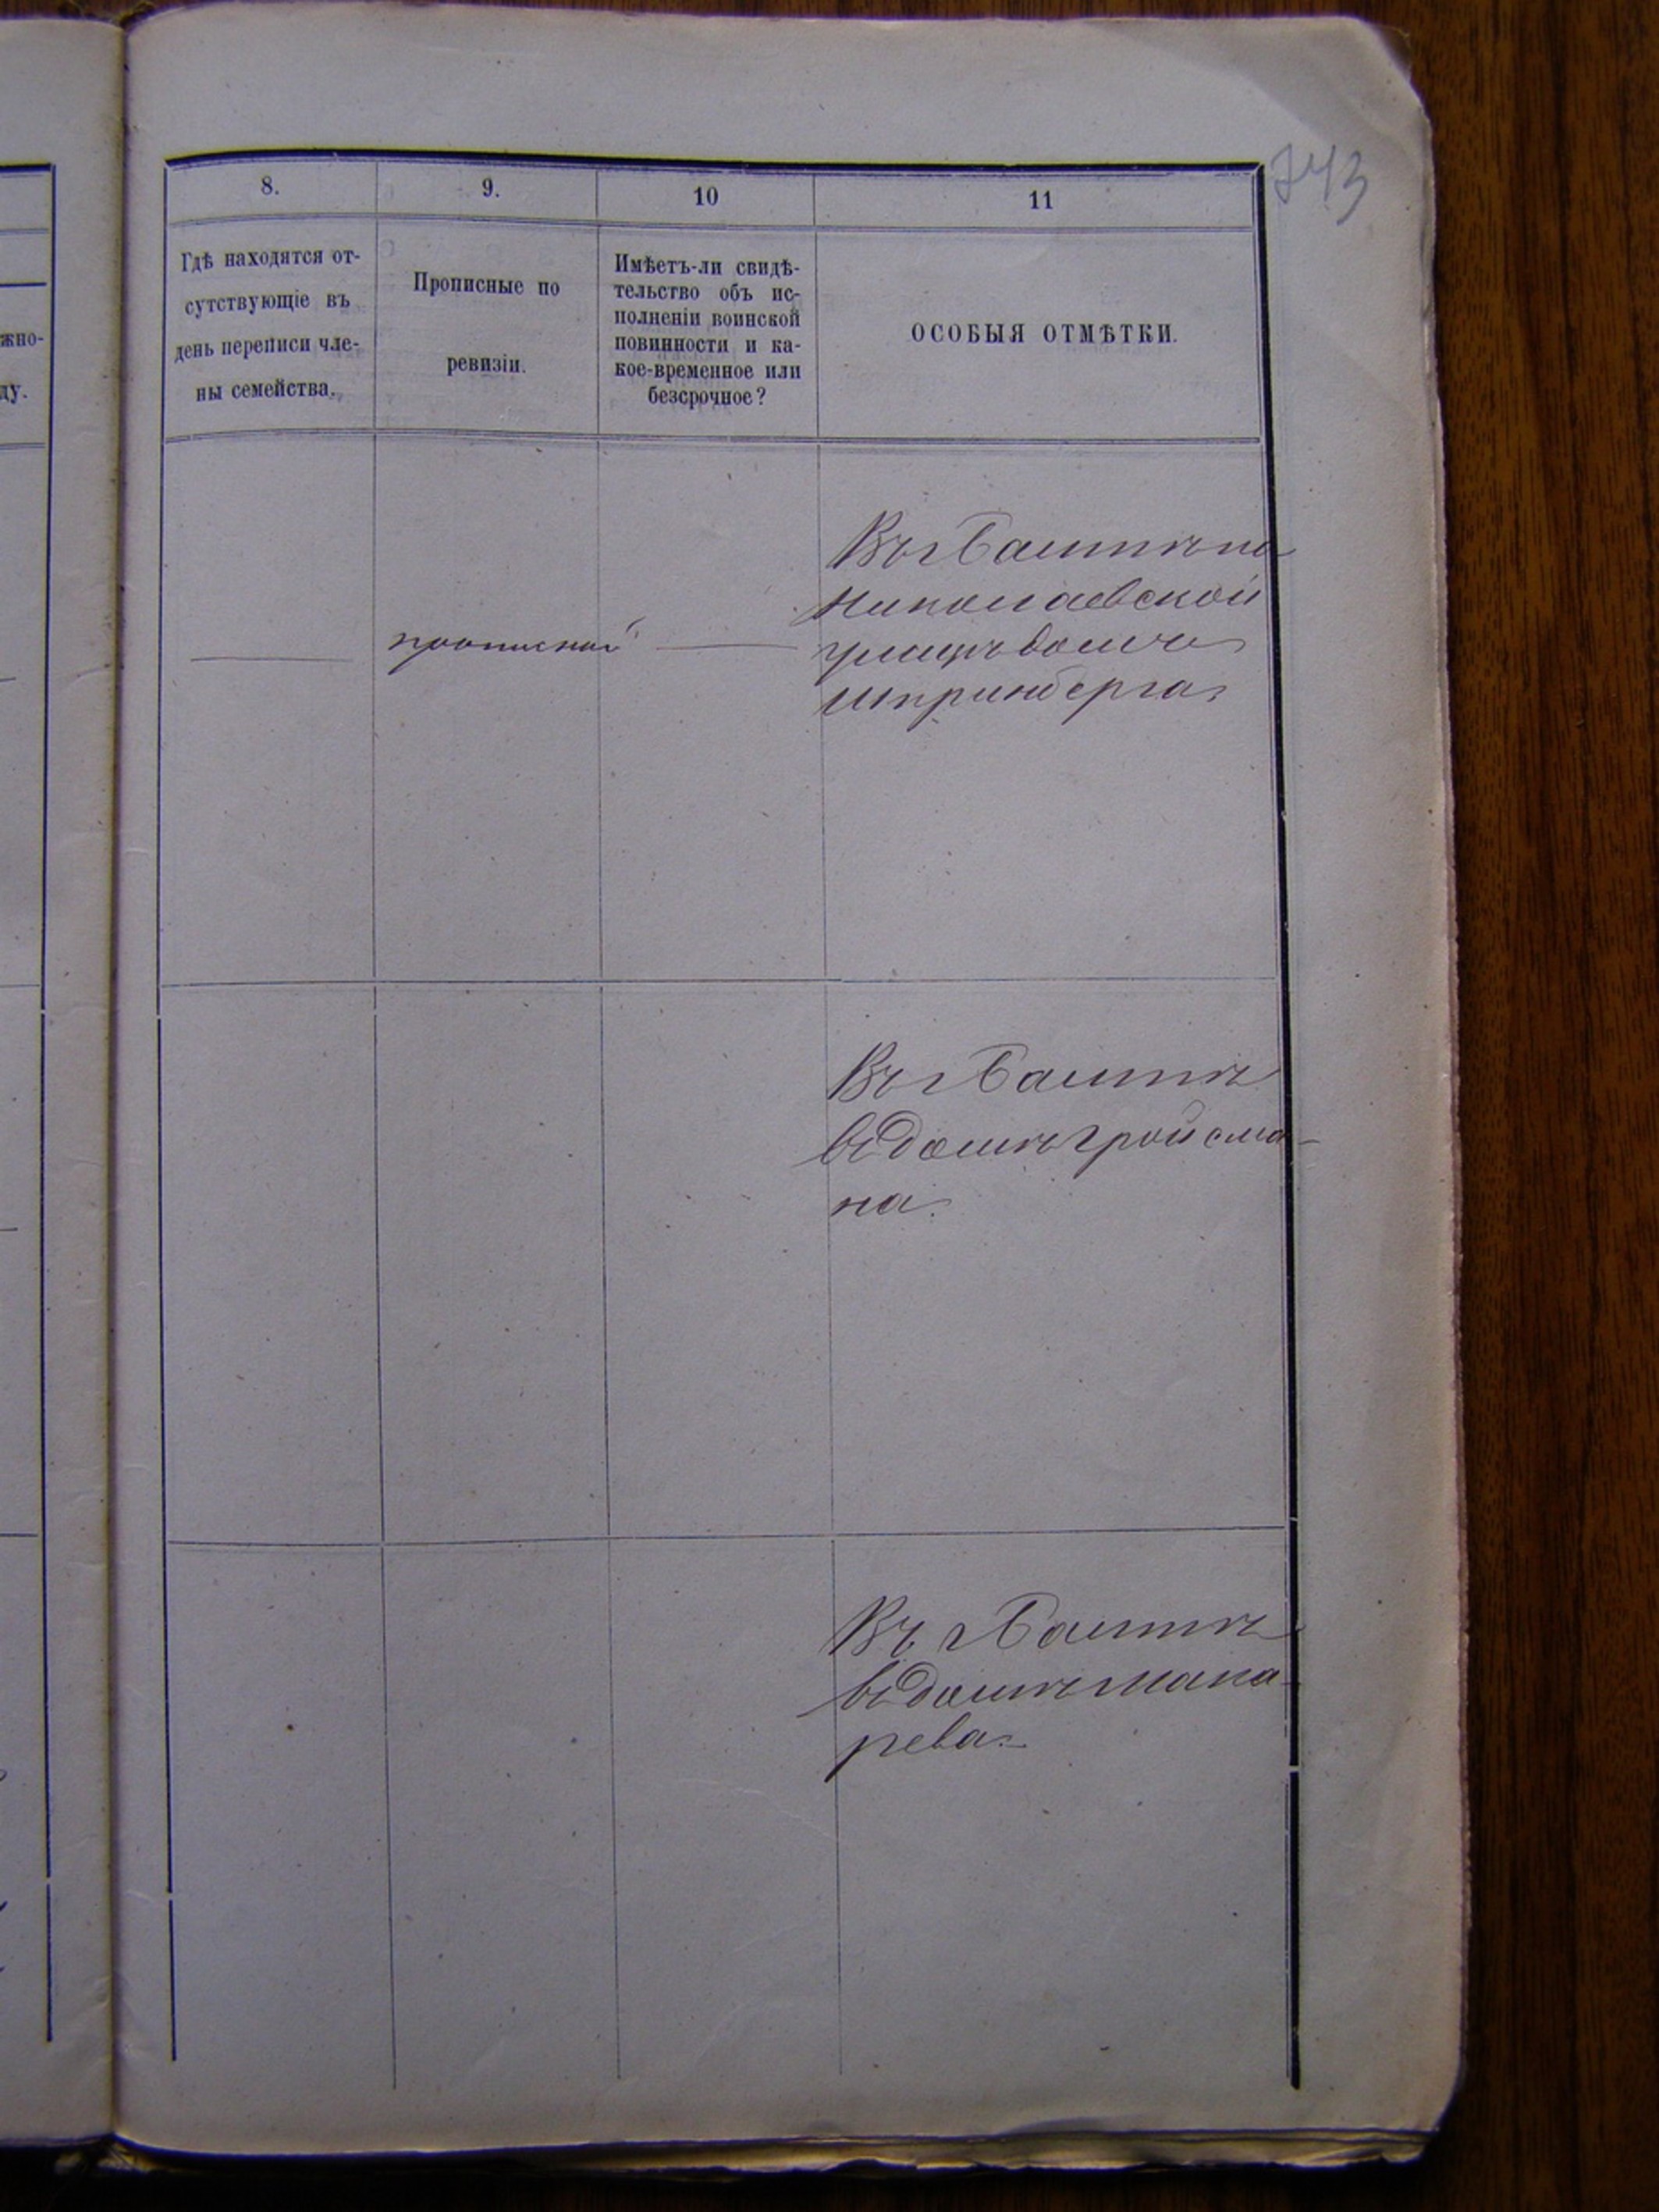 743
8.
9.
10
11
Гдѣ находятся от-
сутствующіе въ
день переписи чле-
ны семейства.
Прописные по
ревизіи.
Имѣетъ-ли свидѣ-
тельство объ ис-
полненіи воинской
повинности и ка-
кое-временное или
безсрочное?
ОСОБЫЯ ОТМѢТКИ.
жно-
ду.
Въ г Балтѣ на
Николаевской
прописной
улицѣ домъ
Шпринберга
Въ г Балтѣ
въ домѣ Гройсма-
на.
Въ г Балтѣ
въ домѣ Мака-
рева